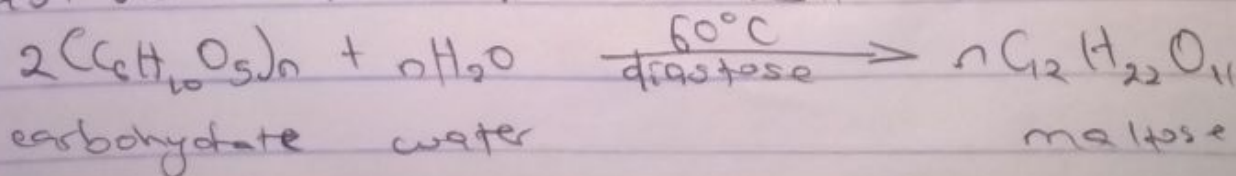 2(C₆H₁₀O₅)n + nH₂O 60°C diastose → nC₁₂H₂₂O₁₁
carbohydrate water maltose